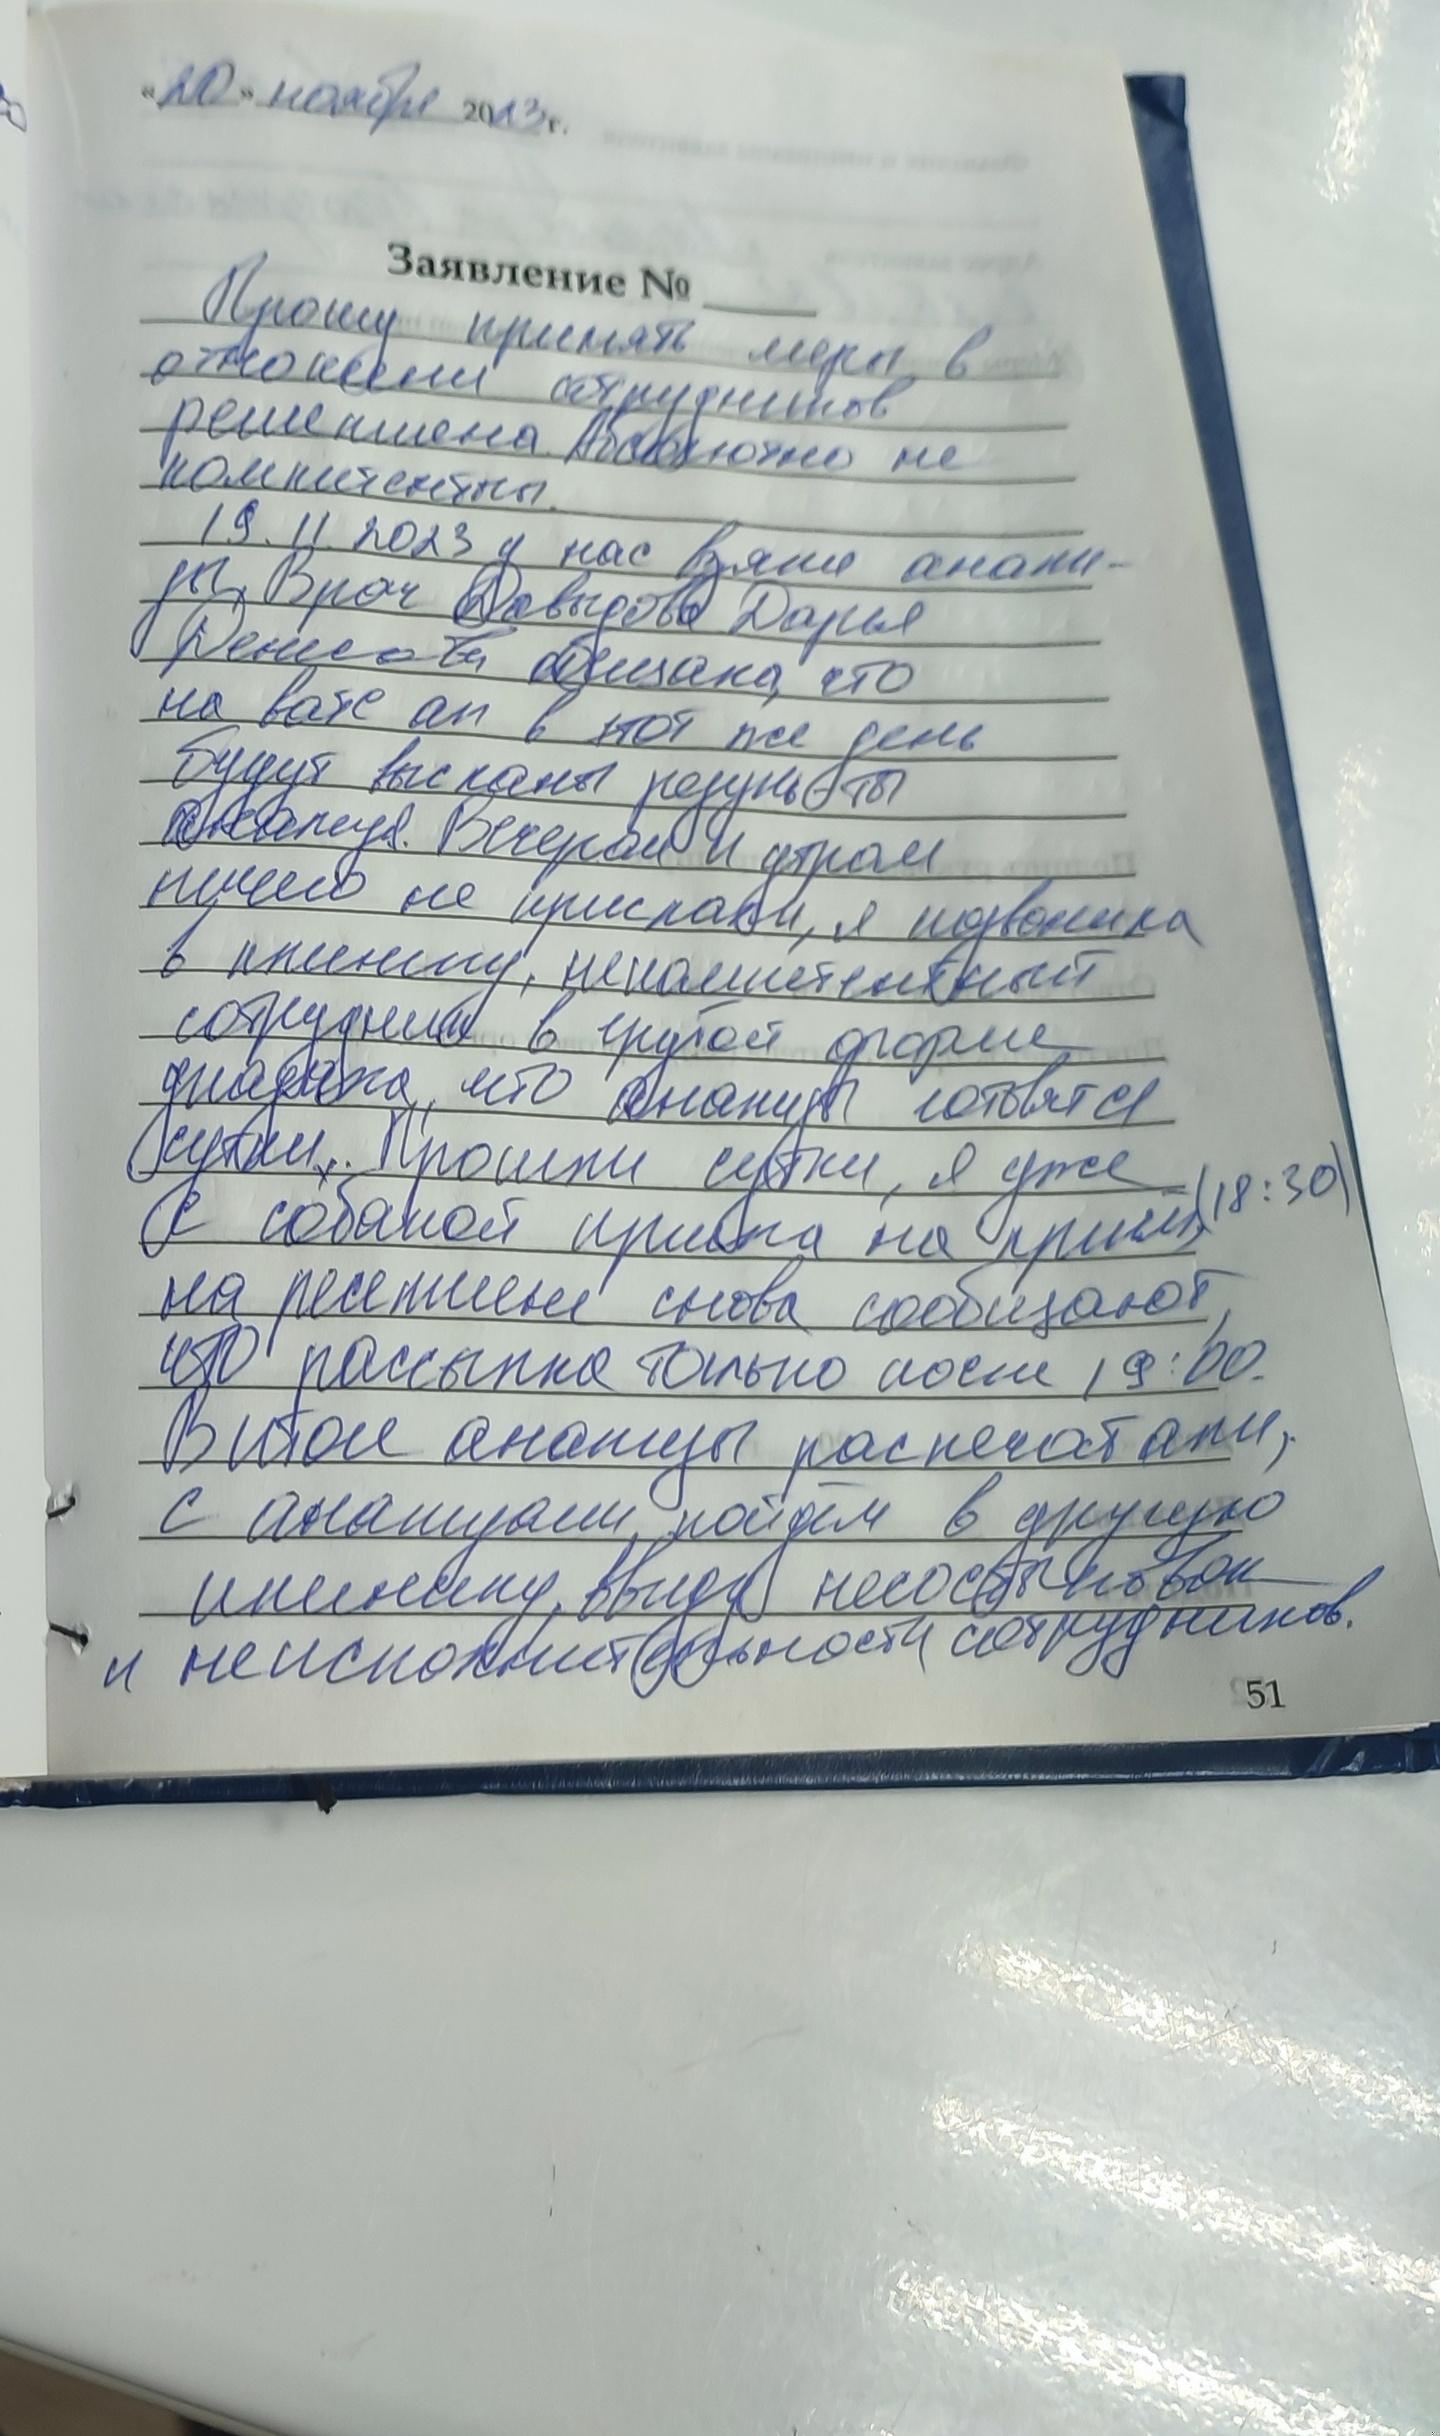 «20» ноября 2023 г.
Заявление № ____
Прошу принять меры в
отношении сотрудников
решепшена. Абсолютно не
компитентны.
19.11.2023 у нас взяли анали-
зы, Врач Давыдова Дарья
обещала, что
на ватс ап в этот же день
будут высланы результ-ты
анализа. Вечером и утром
ничего не прислали, я позвонила
в клинику, некомпитентный
сотрудник в грубой форме
что анализы готовятся
сутки. Прошли сутки, я уже
с собакой пришла на приём (18:30)
на ресепшене снова сообщают,
что рассылка только после 19:00.
В итоге анализы распечатали,
с анализами пойдём в другую
клинику, ввиду
и неисполнительности сотрудников.
51